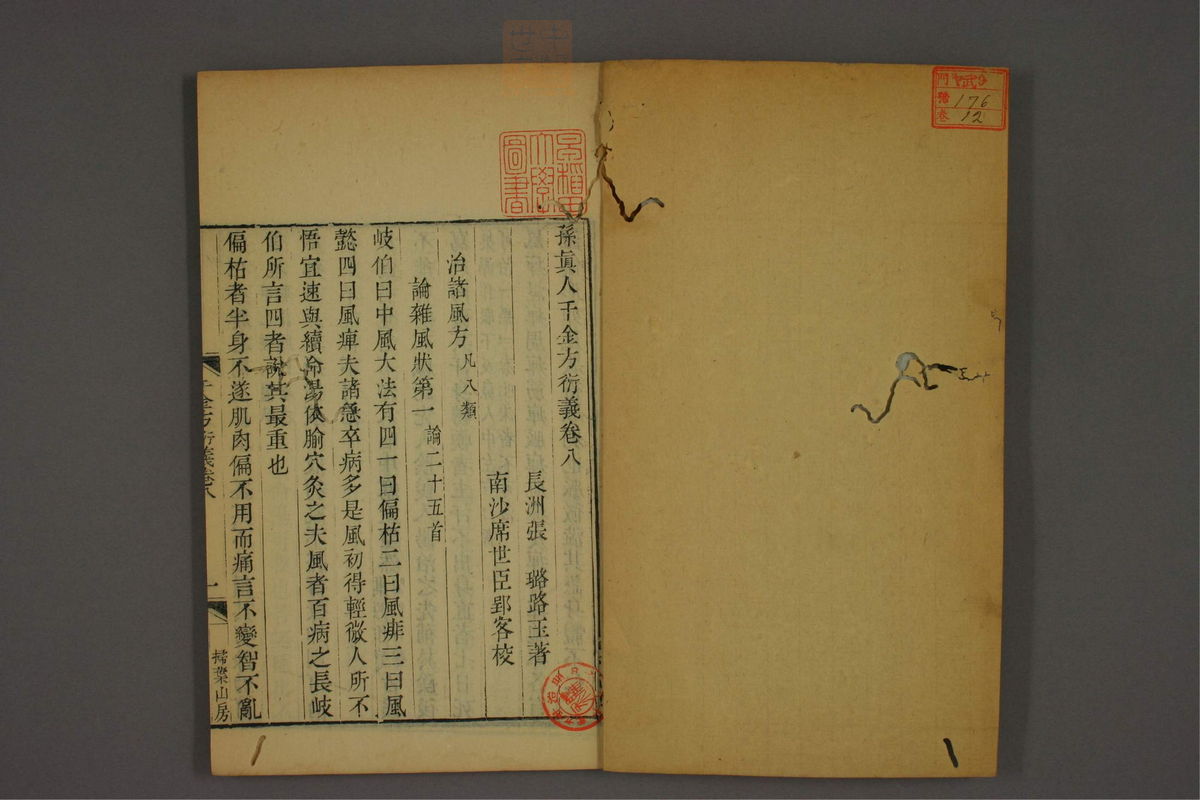 孫真人千金方衍義卷八
長洲張 璐路玉著
南沙席世臣郢客校
治諸風方 凡八類
論雜風狀第一 論二十五首
岐伯曰中風大法有四一曰偏枯二曰風痱三曰風
懿四曰風痺夫諸急卒病多是風初得輕微人所不
悟宜速與續命湯依腧穴灸之夫風者百病之長岐
伯所言四者說其最重也
偏枯者半身不遂肌肉偏不用而痛言不變智不亂
千金方衍義卷八
一
掃葉山房
早稻田大學圖書
門
號
卷
176
12